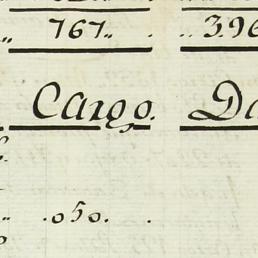 „ 767 „ 396
Cargo. Da
„ .050.